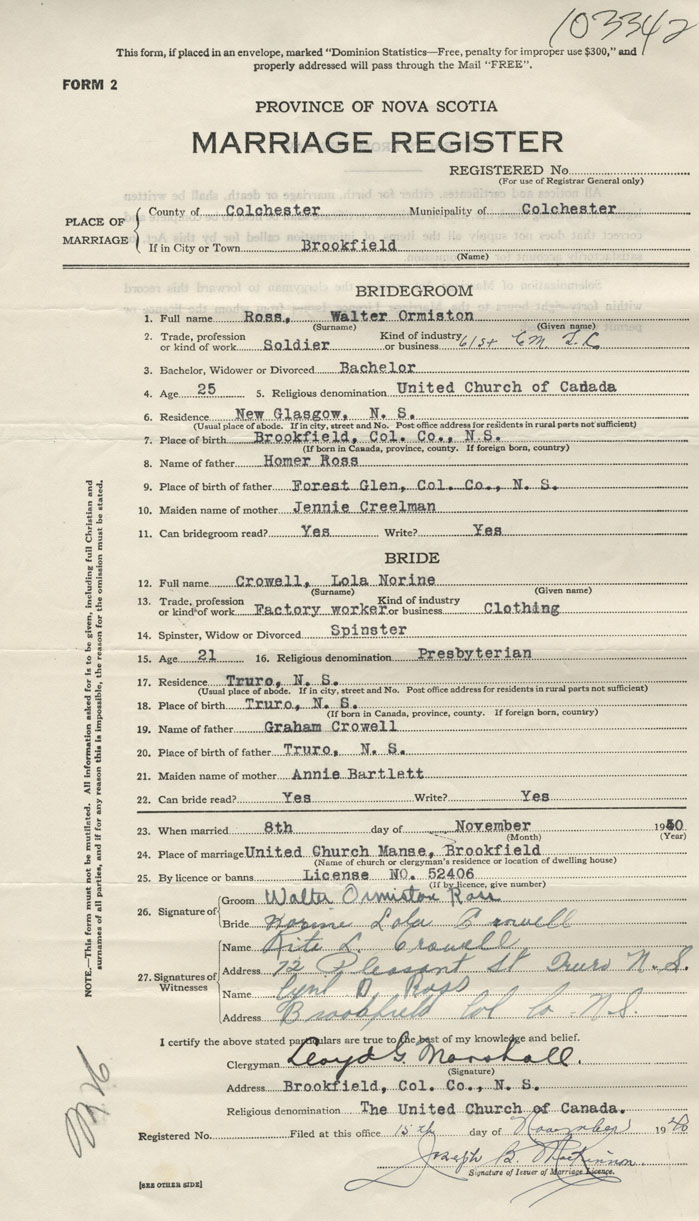 103342
This form, if placed in an envelope, marked "Dominion Statistics—Free, penalty for improper use $300," and
properly addressed will pass through the Mail "FREE".
FORM 2
PROVINCE OF NOVA SCOTIA
MARRIAGE REGISTER
REGISTERED No.
(For use of Registrar General only)
PLACE OF MARRIAGE
County of Colchester Municipality of Colchester
If in City or Town Brookfield
(Name)
BRIDEGROOM
1. Full name Ross, Walter Ormiston
(Surname) (Given name)
2. Trade, profession or kind of work Soldier Kind of industry or business 61st
3. Bachelor, Widower or Divorced Bachelor
4. Age 25 5. Religious denomination United Church of Canada
6. Residence New Glasgow, N. S.
(Usual place of abode. If in city, street and No. Post office address for residents in rural parts not sufficient)
7. Place of birth Brookfield, Col. Co., N.S.
(If born in Canada, province, county. If foreign born, country)
8. Name of father Homer Ross
9. Place of birth of father Forest Glen, Col. Co., N. S.
10. Maiden name of mother Jennie Creelman
11. Can bridegroom read? Yes Write? Yes
BRIDE
12. Full name Crowell, Lola Norine
(Surname) (Given name)
13. Trade, profession or kind of work Factory worker Kind of industry or business Clothing
14. Spinster, Widow or Divorced Spinster
15. Age 21 16. Religious denomination Presbyterian
17. Residence Truro, N. S.
(Usual place of abode. If in city, street and No. Post office address for residents in rural parts not sufficient)
18. Place of birth Truro, N. S.
(If born in Canada, province, county. If foreign born, country)
19. Name of father Graham Crowell
20. Place of birth of father Truro, N. S.
21. Maiden name of mother Annie Bartlett
22. Can bride read? Yes Write? Yes
23. When married 8th day of November 1940
(Month) (Year)
24. Place of marriage United Church Manse, Brookfield
(Name of church or clergyman's residence or location of dwelling house)
25. By licence or banns License NO. 52406
(If by licence, give number)
26. Signature of
Groom Walter Ormiston Ross
Bride Norine Lola Crowell
27. Signatures of Witnesses
Name Rita L. Crowell
Address 72 Pleasant St Truro N. S.
Name Cyril D Ross
Address Brookfield Col Co. N.S.
I certify the above stated particulars are true to the best of my knowledge and belief.
Clergyman Lloyd G. Marshall.
(Signature)
Address Brookfield, Col. Co., N. S.
Religious denomination The United Church of Canada.
Registered No. Filed at this office 15th day of November 1940
Joseph B. MacKinnon
Signature of Issuer of Marriage Licence.
[SEE OTHER SIDE]
NOTE.—This form must not be mutilated. All information asked for is to be given, including full Christian and
surnames of all parties, and if for any reason this is impossible, the reason for the omission must be stated.